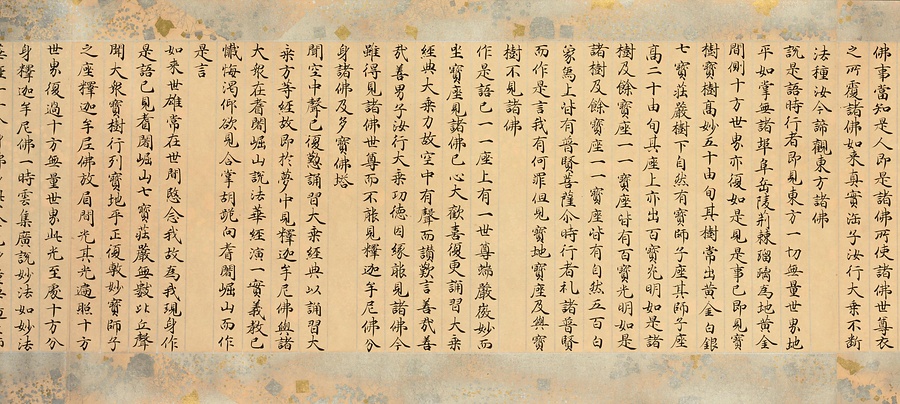 佛事當知是人即是諸佛所使諸佛世尊衣
之所覆諸佛如來真實法子汝行大乘不斷
法種汝今諦觀東方諸佛
說是語時行者即見東方一切無量世界地
平如掌無諸埠阜丘陵荊棘瑠璃為地黃金
間側十方世界亦復如是見是事已即見寶
樹寶樹高妙五千由旬其樹常出黃金白銀
七寶莊嚴樹下自然有寶師子座其師子座
高二千由旬其座上亦出百寶光明如是諸
樹及餘寶座一一寶座皆有百寶光明如是
諸樹及餘寶座一一寶座皆有自然五百白
象象上皆有普賢菩薩尒時行者礼諸普賢
而作是言我有何罪但見寶地寶座及與寶
樹不見諸佛
作是語已一一座上有一世尊端嚴微妙而
坐寶座見諸佛已心大歡喜復更誦習大乘
經典大乘力故空中有聲而讚歎言善哉善
哉善男子汝行大乘功德因緣能見諸佛今
雖得見諸佛世尊而不能見釋迦牟尼佛分
身諸佛及多寶佛塔
聞空中聲已復懃誦習大乘經典以誦習大
乘方等經故即於夢中見釋迦牟尼佛與諸
大衆在耆闍崛山說法華經演一實義教已
懺悔渴仰欲見合掌胡跪向耆闍崛山而作
是言
如来世雄常在世間愍念我故為我現身作
是語已見耆闍崛山七寶莊嚴無數比丘聲
聞大衆寶樹行列寶地平正復敷妙寶師子
之座釋迦牟尼佛放眉間光其光遍照十方
世界復過十方無量世界此光至處十方分
身釋迦牟尼佛一時雲集廣說妙法如妙法